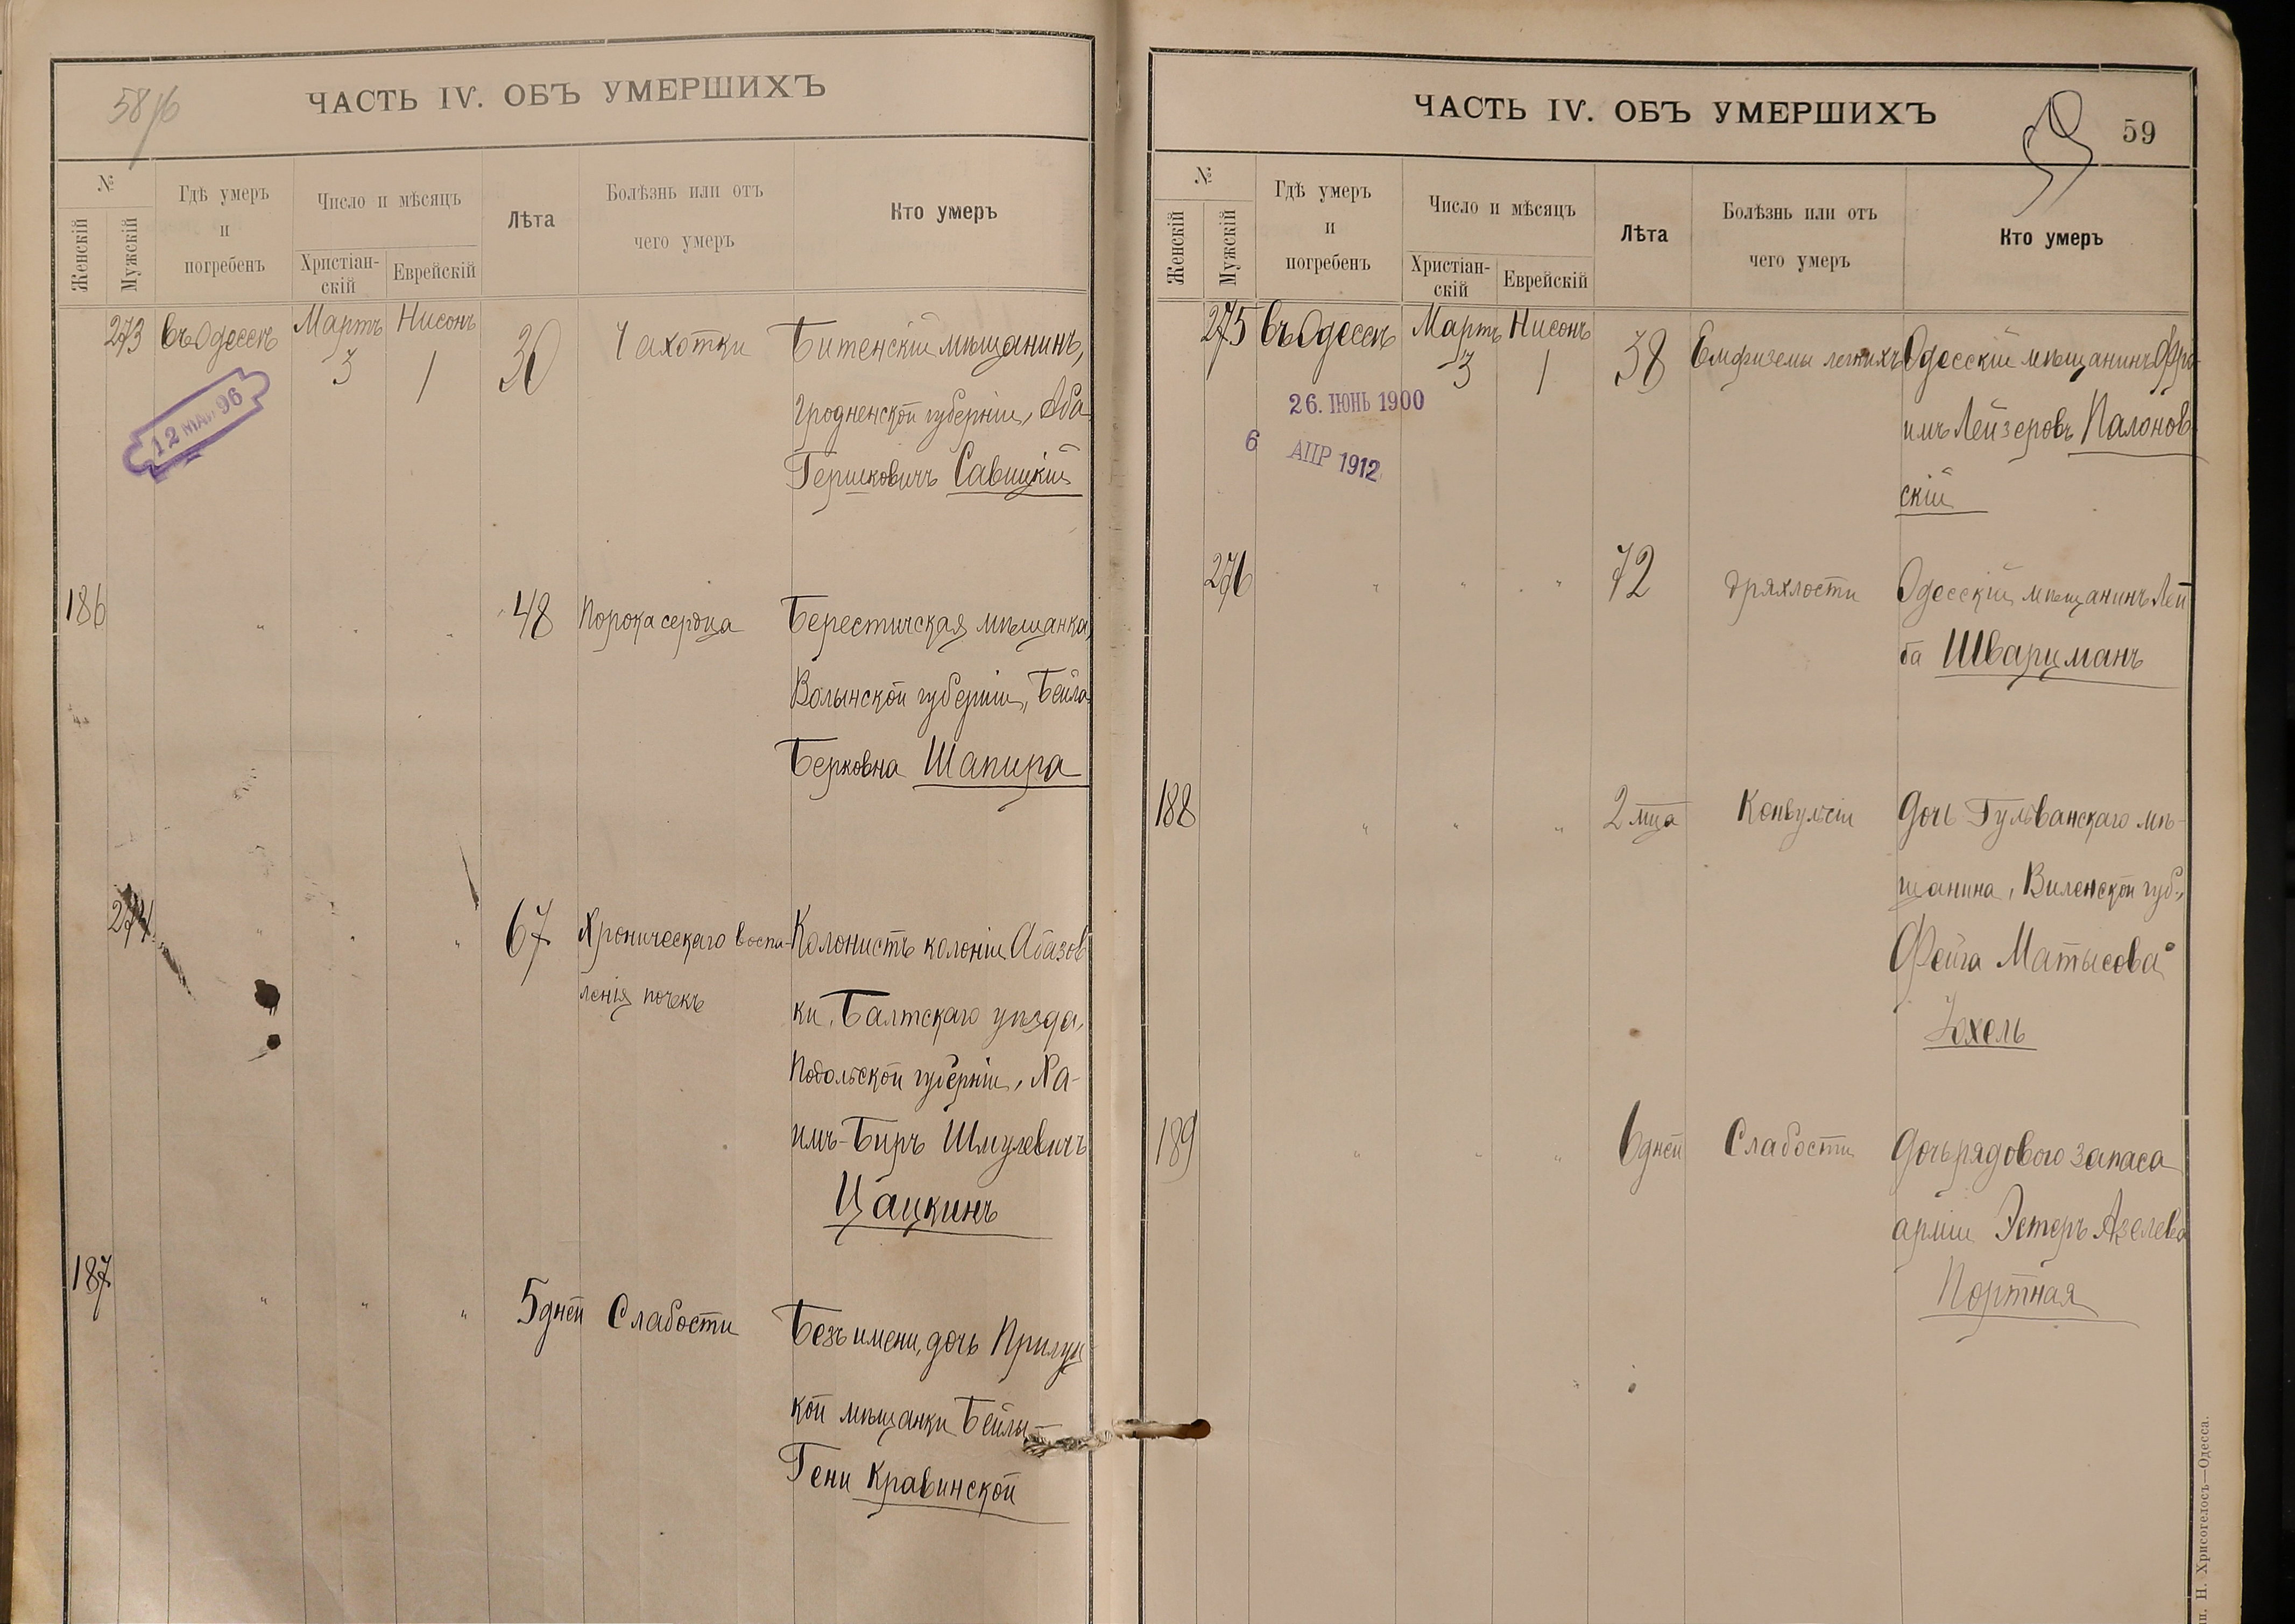 58/б
ЧАСТЬ IV. ОБЪ УМЕРШИХЪ
№
Женскій
Мужскій
Гдѣ умеръ
и
погребенъ
Число и мѣсяцъ
Христіан-
скій
Еврейскій
Лѣта
Болѣзнь или отъ
чего умеръ
Кто умеръ
273 въ Одессѣ Мартъ 3 Нисонъ 1 30 Чахотки Битенскій мѣщанинъ,
Гродненской губерніи, Аба
Гершковичъ Савицкій
12 МАР 96
186 " " " 48 Порока сердца Берестичская мѣщанка,
Волынской губерніи, Бейла
Берковна Шапира
274 " " " 67 Хроническаго воспа- Колонистъ колоніи Абазов
ленія почекъ ки, Балтскаго уѣзда,
Подольской губерніи, Ха-
имъ-Биръ Шмулевичъ
Цацкинъ
187 " " " 5 дней Слабости Безъ имени, дочь Прилуц
кой мѣщанки Бейлы-
Гени Кравинской
ЧАСТЬ IV. ОБЪ УМЕРШИХЪ
59
№
Женскій
Мужскій
Гдѣ умеръ
и
погребенъ
Число и мѣсяцъ
Христіан-
скій
Еврейскій
Лѣта
Болѣзнь или отъ
чего умеръ
Кто умеръ
275 въ Одессѣ Мартъ 3 Нисонъ 1 38 Емфиземы легкихъ Одесскій мѣщанинъ Фро-
имъ Лейзеровъ Палонов
скій
26. ІЮНЬ 1900
6 АПР 1912
276 " " " 72 дряхлости Одесскій мѣщанинъ Лей
ба Шварцманъ
188 " " " 2 мца Конвульсіи Дочь Гульванскаго мѣ-
щанина, Виленской губ.,
Фейга Матысова
Юхель
189 " " " 6 дней Слабости Дочь рядового запаса
арміи Эстеръ Азелева
Портная
Н. Хрисогелосъ—Одесса.